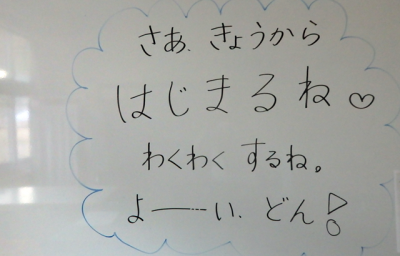 さあ、きょうから
はじまるね♡
わくわく するね。
よーーい、どん!